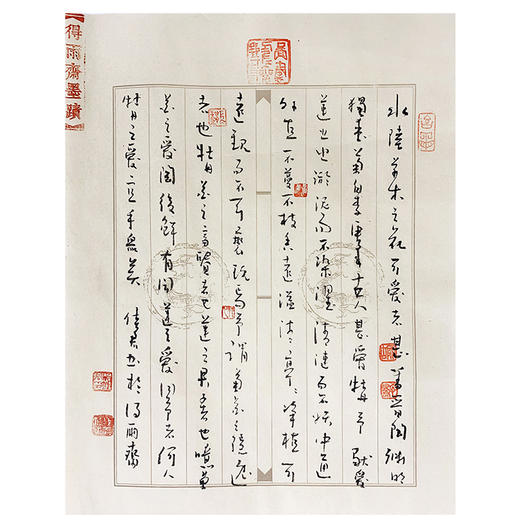 得雨齋墨蹟
水陸草木之花可愛者甚蕃晉陶淵明
獨愛菊自李唐來世人甚愛牡丹予獨愛
蓮之出淤泥而不染濯清漣而不妖中通
外直不蔓不枝香遠溢清亭〻淨植可
遠觀而不可褻玩焉予謂菊花之隱逸
者也牡丹花之富貴者也蓮之君子者也噫菊
花之愛陶後鮮有聞蓮之愛同予者何人
牡丹之愛宜乎眾矣 书於得雨齋